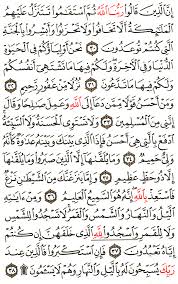 إِنَّ ٱلَّذِينَ قَالُوا۟ رَبُّنَا ٱللَّهُ ثُمَّ ٱسْتَقَٰمُوا۟ تَتَنَزَّلُ عَلَيْهِمُ
ٱلْمَلَٰٓئِكَةُ أَلَّا تَخَافُوا۟ وَلَا تَحْزَنُوا۟ وَأَبْشِرُوا۟ بِٱلْجَنَّةِ
ٱلَّتِى كُنتُمْ تُوعَدُونَ ٣٠ نَحْنُ أَوْلِيَآؤُكُمْ فِى ٱلْحَيَوٰةِ
ٱلدُّنْيَا وَفِى ٱلْءَاخِرَةِ وَلَكُمْ فِيهَا مَا تَشْتَهِىٓ أَنفُسُكُمْ
وَلَكُمْ فِيهَا مَا تَدَّعُونَ ٣١ نُزُلًا مِّنْ غَفُورٍ رَّحِيمٍ ٣٢
وَمَنْ أَحْسَنُ قَوْلًا مِّمَّن دَعَآ إِلَى ٱللَّهِ وَعَمِلَ صَٰلِحًا وَقَالَ
إِنَّنِى مِنَ ٱلْمُسْلِمِينَ ٣٣ وَلَا تَسْتَوِى ٱلْحَسَنَةُ وَلَا ٱلسَّيِّئَةُ
ٱدْفَعْ بِٱلَّتِى هِىَ أَحْسَنُ فَإِذَا ٱلَّذِى بَيْنَكَ وَبَيْنَهُۥ عَدَٰوَةٌ كَأَنَّهُۥ
وَلِىٌّ حَمِيمٌ ٣٤ وَمَا يُلَقَّىٰهَآ إِلَّا ٱلَّذِينَ صَبَرُوا۟ وَمَا يُلَقَّىٰهَآ
إِلَّا ذُو حَظٍّ عَظِيمٍ ٣٥ وَإِمَّا يَنزَغَنَّكَ مِنَ ٱلشَّيْطَٰنِ نَزْغٌ
فَٱسْتَعِذْ بِٱللَّهِ إِنَّهُۥ هُوَ ٱلسَّمِيعُ ٱلْعَلِيمُ ٣٦ وَمِنْ ءَايَٰتِهِ
ٱلَّيْلُ وَٱلنَّهَارُ وَٱلشَّمْسُ وَٱلْقَمَرُ لَا تَسْجُدُوا۟ لِلشَّمْسِ
وَلَا لِلْقَمَرِ وَٱسْجُدُوا۟ لِلَّهِ ٱلَّذِى خَلَقَهُنَّ إِن كُنتُمْ
إِيَّاهُ تَعْبُدُونَ ٣٧ فَإِنِ ٱسْتَكْبَرُوا۟ فَٱلَّذِينَ عِندَ
رَبِّكَ يُسَبِّحُونَ لَهُۥ بِٱلَّيْلِ وَٱلنَّهَارِ وَهُمْ لَا يَسْـَٔمُونَ ۩ ٣٨